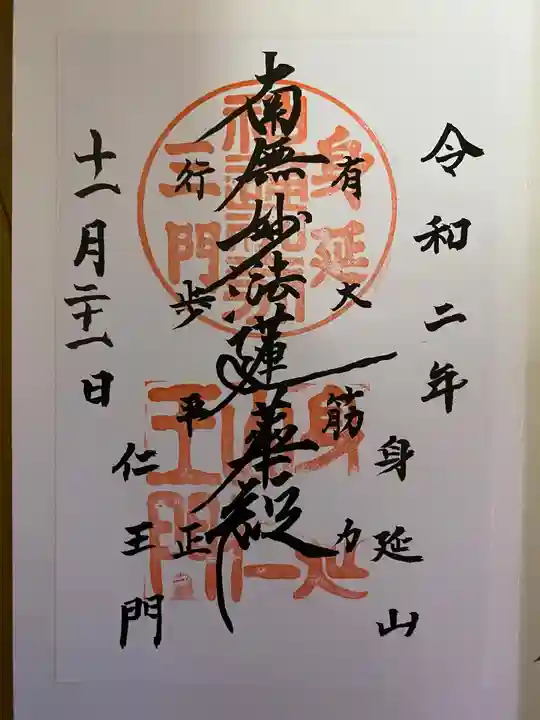 令和二年
身延山
有大筋力
南無妙法蓮華経
行歩平正
仁王門
十一月二十一日
身延
三門
身延
王門